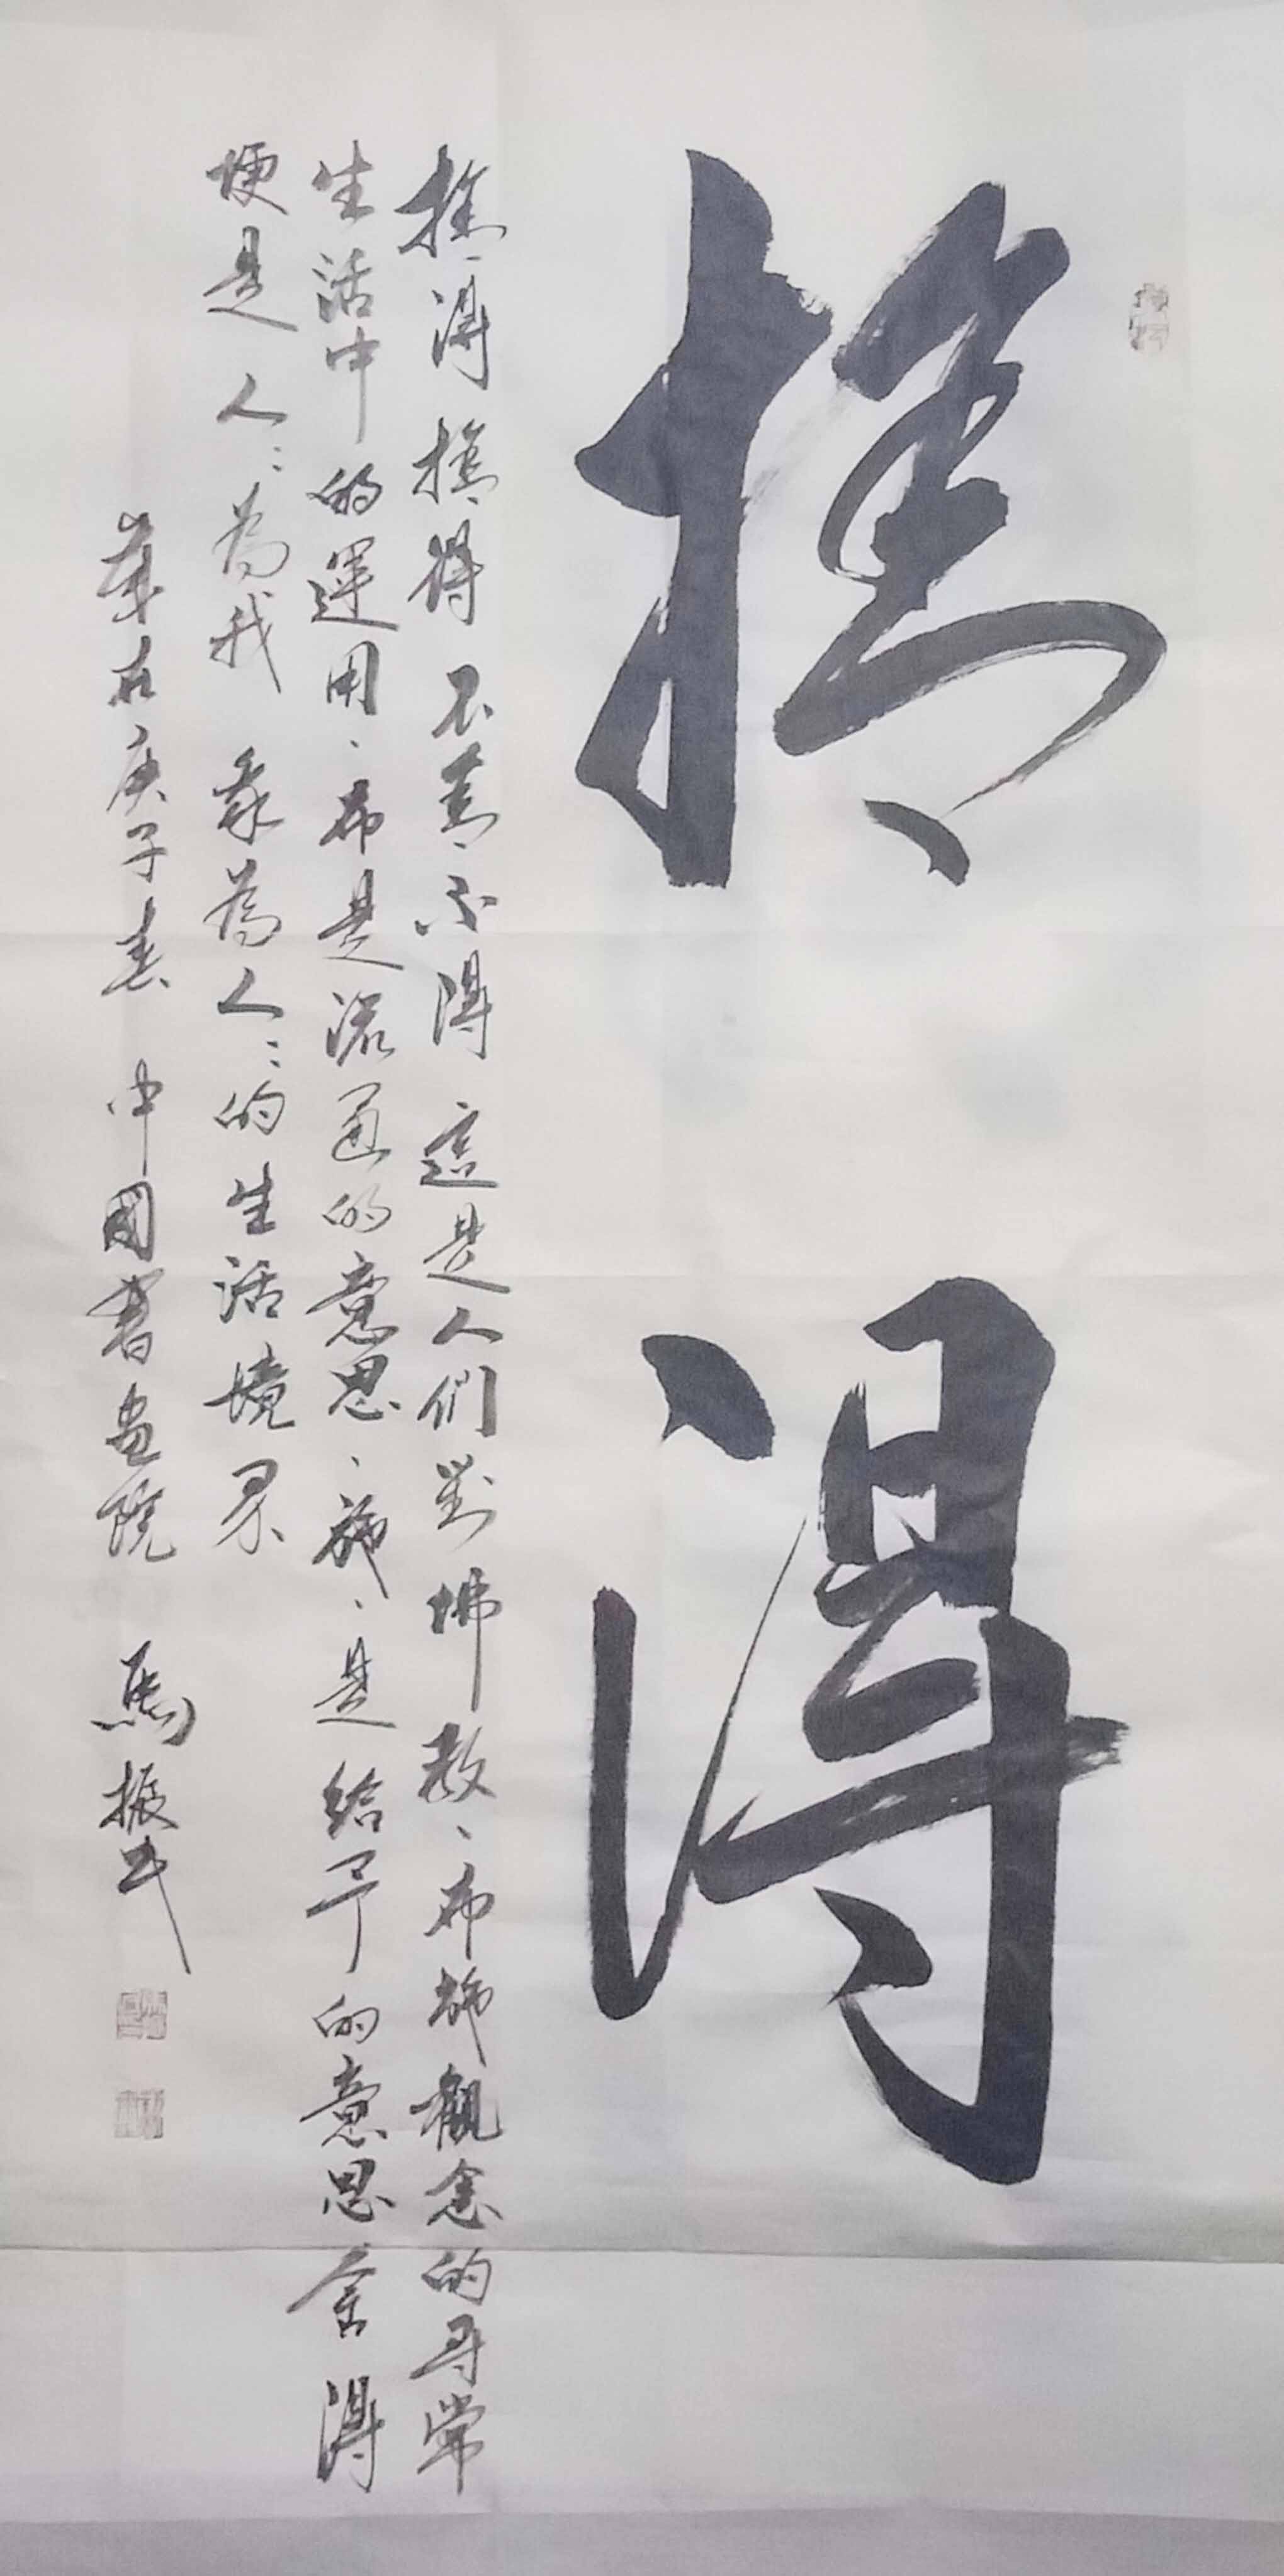 捨得
捨得捨得不舍不得這是人們對佛教、布施觀念的尋常
生活中的運用、布是流通的意思、施、是給予的意思舍得
便是人〻為我我為人〻的生活境界
歲在庚子春中國書画院馬振武